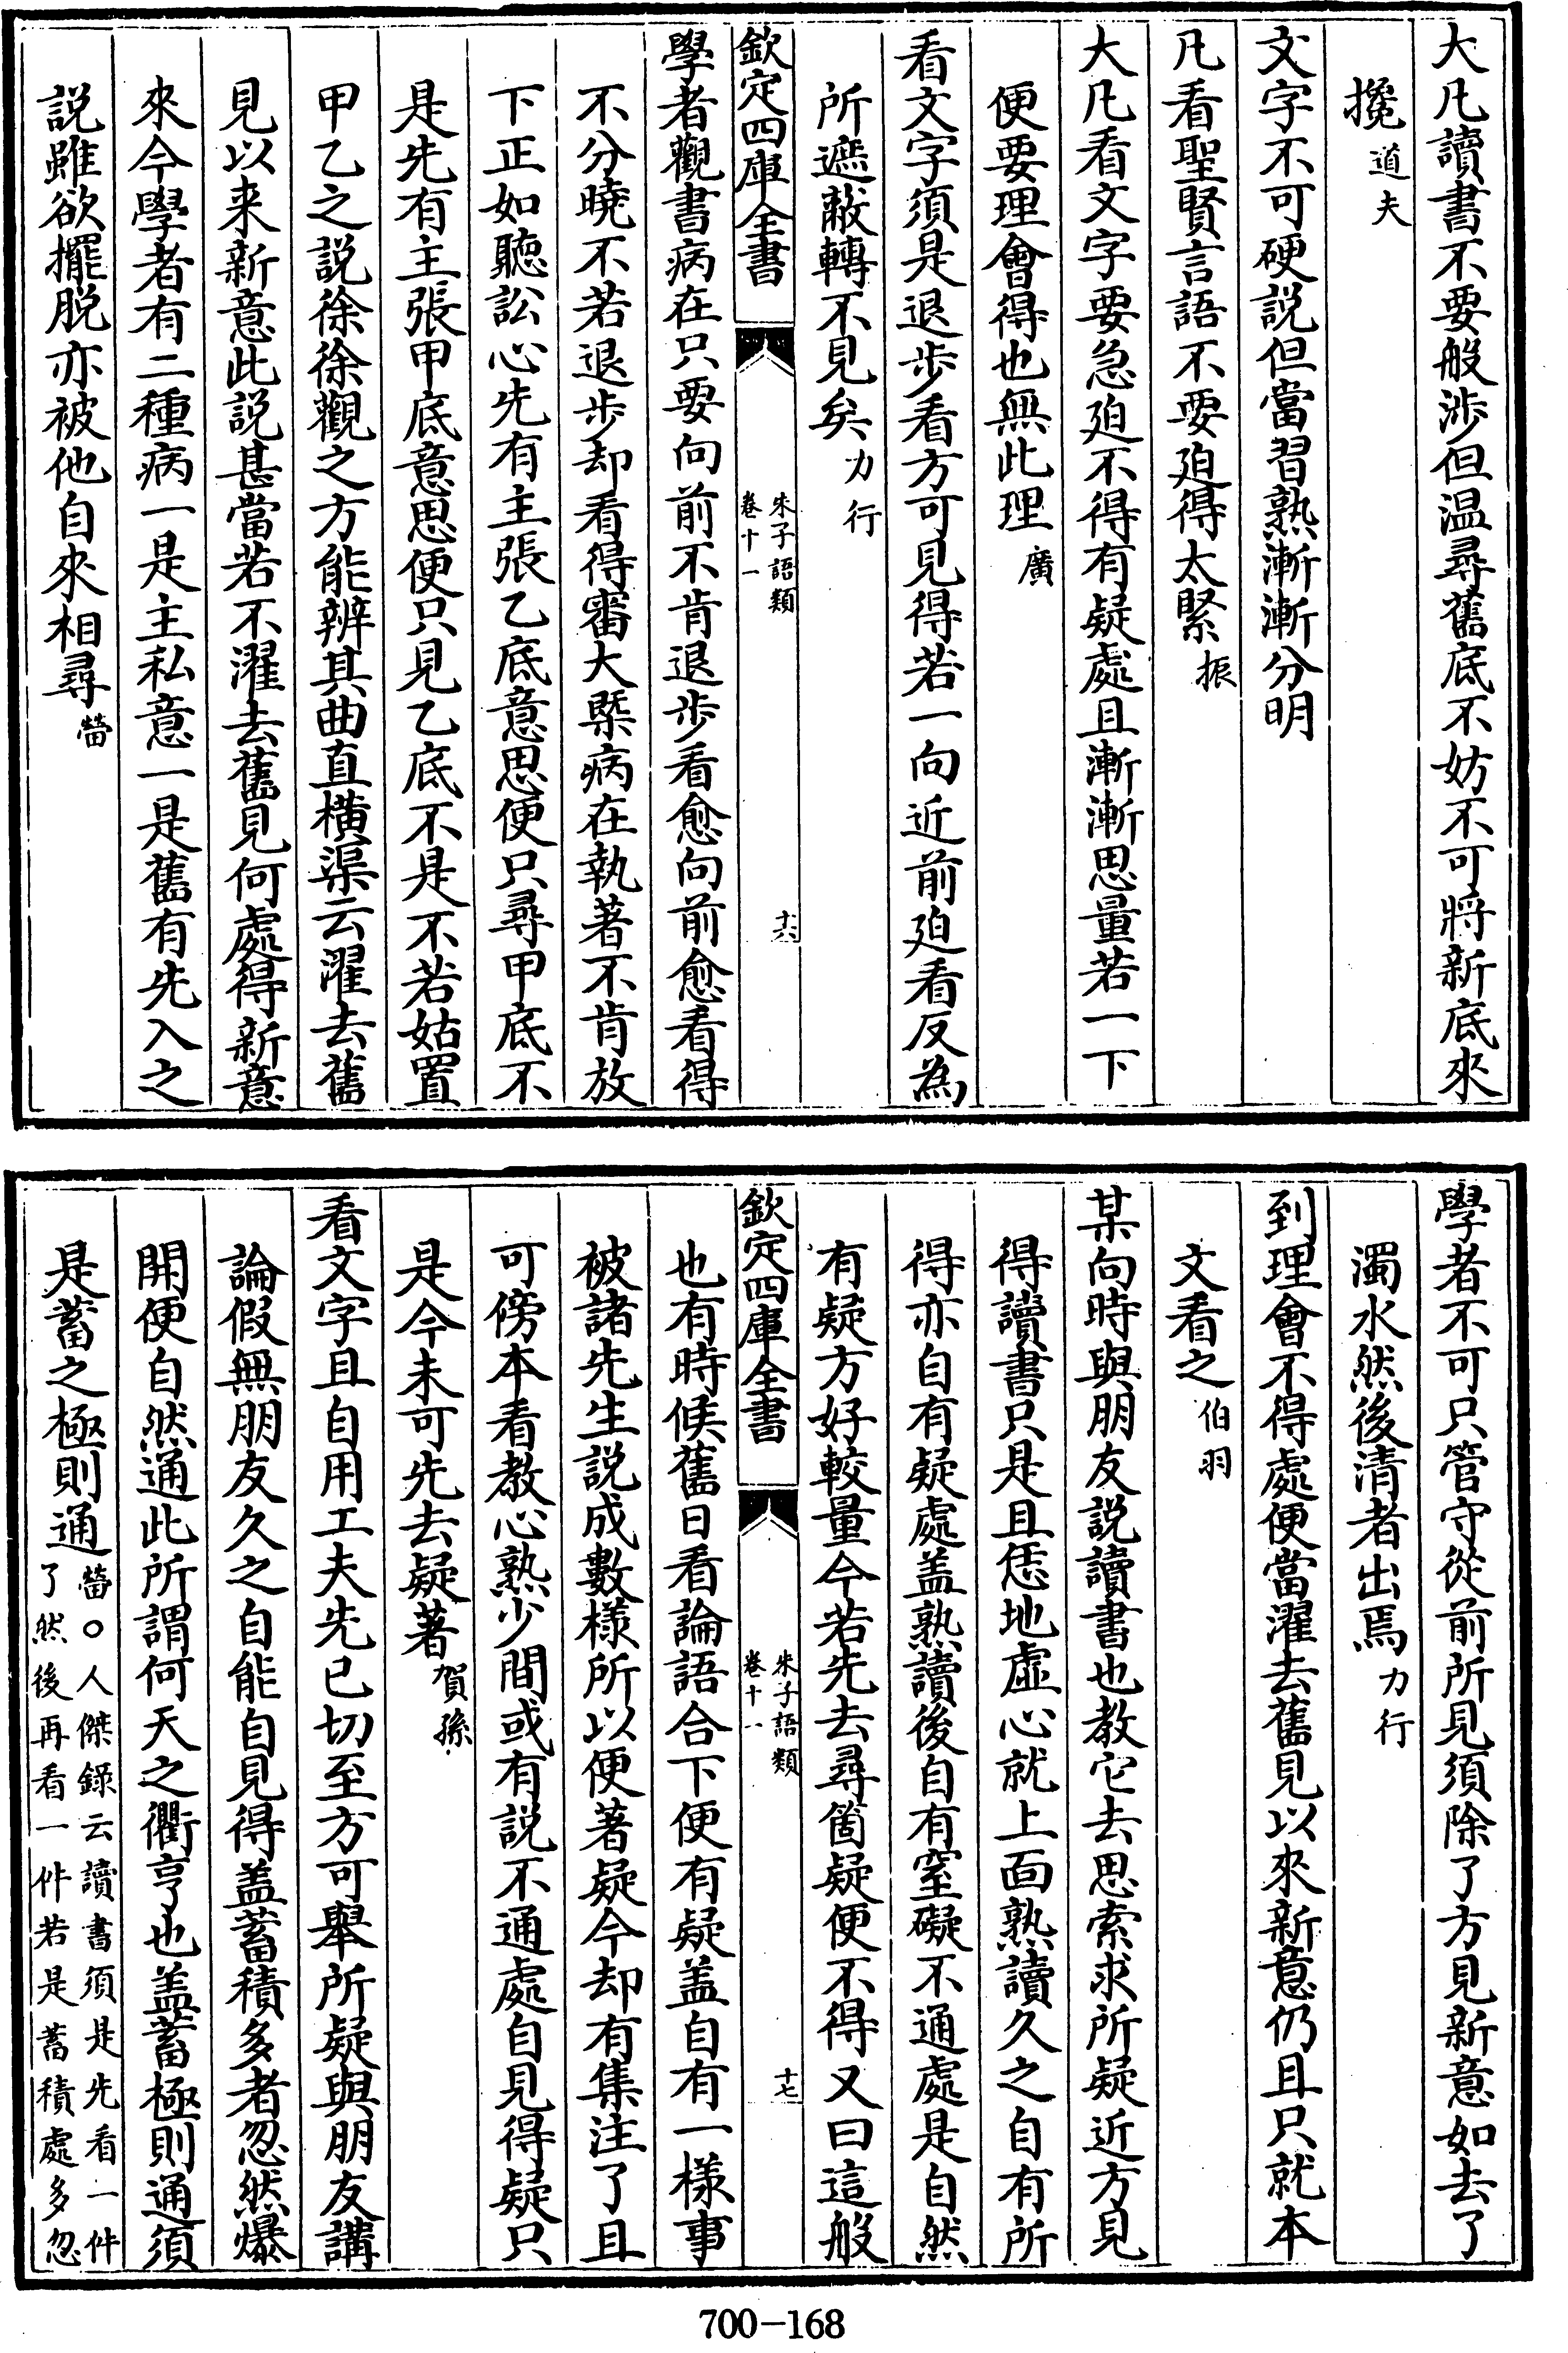 大凡讀書不要般涉但温尋舊底不妨不可將新底來
攙道夫
文字不可硬説但當習熟漸漸分明
凡看聖賢言語不要廹得太緊振
大凡看文字要急廹不得有疑處且漸漸思量若一下
便要理會得也無此理廣
看文字須是退歩看方可見得若一向近前廹看反為
所遮蔽轉不見矣力行
欽定四庫全書
朱子語類
卷十一
十六
學者觀書病在只要向前不肯退歩看愈向前愈看得
不分曉不若退歩却看得審大槩病在執著不肯放
下正如聽訟心先有主張乙底意思便只尋甲底不
是先有主張甲底意思便只見乙底不是不若姑置
甲乙之説徐徐觀之方能辨其曲直横渠云濯去舊
見以来新意此説甚當若不濯去舊見何處得新意
來今學者有二種病一是主私意一是舊有先入之
説雖欲擺脱亦被他自來相尋㽦
學者不可只管守從前所見須除了方見新意如去了
濁水然後清者出焉力行
到理會不得處便當濯去舊見以來新意仍且只就本
文看之伯羽
某向時與朋友説讀書也教它去思索求所疑近方見
得讀書只是且恁地虚心就上面熟讀久之自有所
得亦自有疑處盖熟讀後自有窒礙不通處是自然
有疑方好較量今若先去尋箇疑便不得又曰這般
欽定四庫全書
朱子語類
卷十一
十七
也有時候舊日看論語合下便有疑盖自有一様事
被諸先生説成數様所以便著疑今却有集注了且
可傍本看教心熟少間或有説不通處自見得疑只
是今未可先去疑著賀孫
看文字且自用工夫先已切至方可舉所疑與朋友講
論假無朋友久之自能自見得盖蓄積多者忽然爆
開便自然通此所謂何天之衢亨也盖蓄極則通須
是蓄之極則通㽦○人傑錄云讀書須是先看一件
了然後再看一件若是蓄積處多忽
700-168